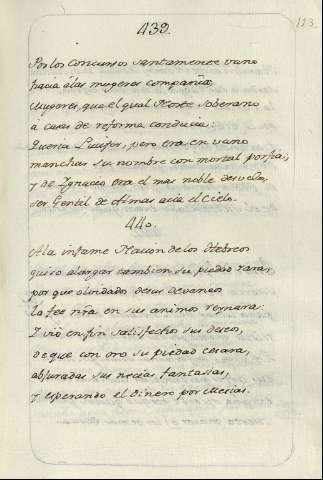 113.
439.
Por los concursos santamente vano
hacia á las mugeres compañia:
Mugeres, que el qual Norte soberano
á casas de reforma conducia:
Queria Lucifer, pero era en vano
manchar su nombre con mortal porfia,
y de Ignacio era el mas noble desvelo,
ser Gentil de Almas acia el Cielo.
440.
A la infame Nacion de los Hebreos
quiso alargar tambien su piedad rara,
por que olvidados de sus devaneos
la fee nra en sus animos reynara:
I vió en fin satisfechos sus deseos,
de que con oro su piedad
abjuradas sus necias fantasias,
y esperando el Dinero por Mesias.